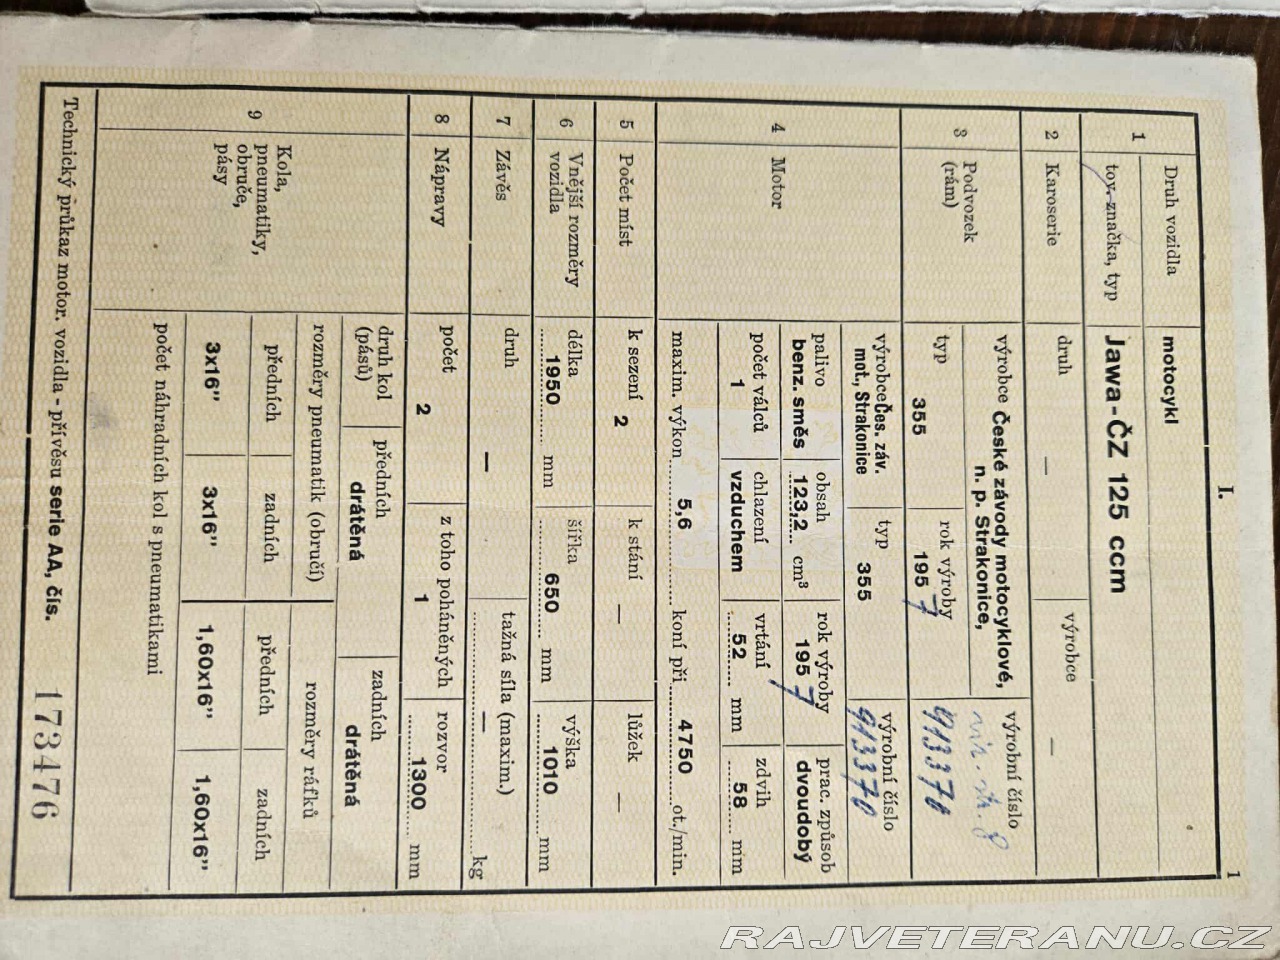 I.
1
1
Druh vozidla
motocykl
tov. značka, typ
Jawa-ČZ 125 ccm
2
Karoserie
druh
—
výrobce
—
3
Podvozek
(rám)
výrobce České závody motocyklové,
n. p. Strakonice,
výrobní číslo
viz. str. 8
typ
355
rok výroby
1957
913370
4
Motor
výrobce Čes. záv.
mot., Strakonice
typ
355
výrobní číslo
913370
palivo
benz. směs
obsah
123,2 cm³
rok výroby
1957
prac. způsob
dvoudobý
počet válců
1
chlazení
vzduchem
vrtání
52 mm
zdvih
58 mm
maxim. výkon 5,6 koní při 4750 ot./min.
5
Počet míst
k sezení
2
k stání
—
lůžek
—
6
Vnější rozměry
vozidla
délka
1950 mm
šířka
650 mm
výška
1010 mm
7
Závěs
druh
—
tažná síla (maxim.)
— kg
8
Nápravy
počet
2
z toho poháněných
1
rozvor
1300 mm
9
Kola,
pneumatiky,
obruče,
pásy
druh kol
(pásů)
předních
drátěná
zadních
drátěná
rozměry pneumatik (obručí)
rozměry ráfků
předních
zadních
předních
zadních
3x16"
3x16"
1,60x16"
1,60x16"
počet náhradních kol s pneumatikami
Technický průkaz motor. vozidla - přívěsu serie AA, čís. 173476
RAJVETERANU.CZ